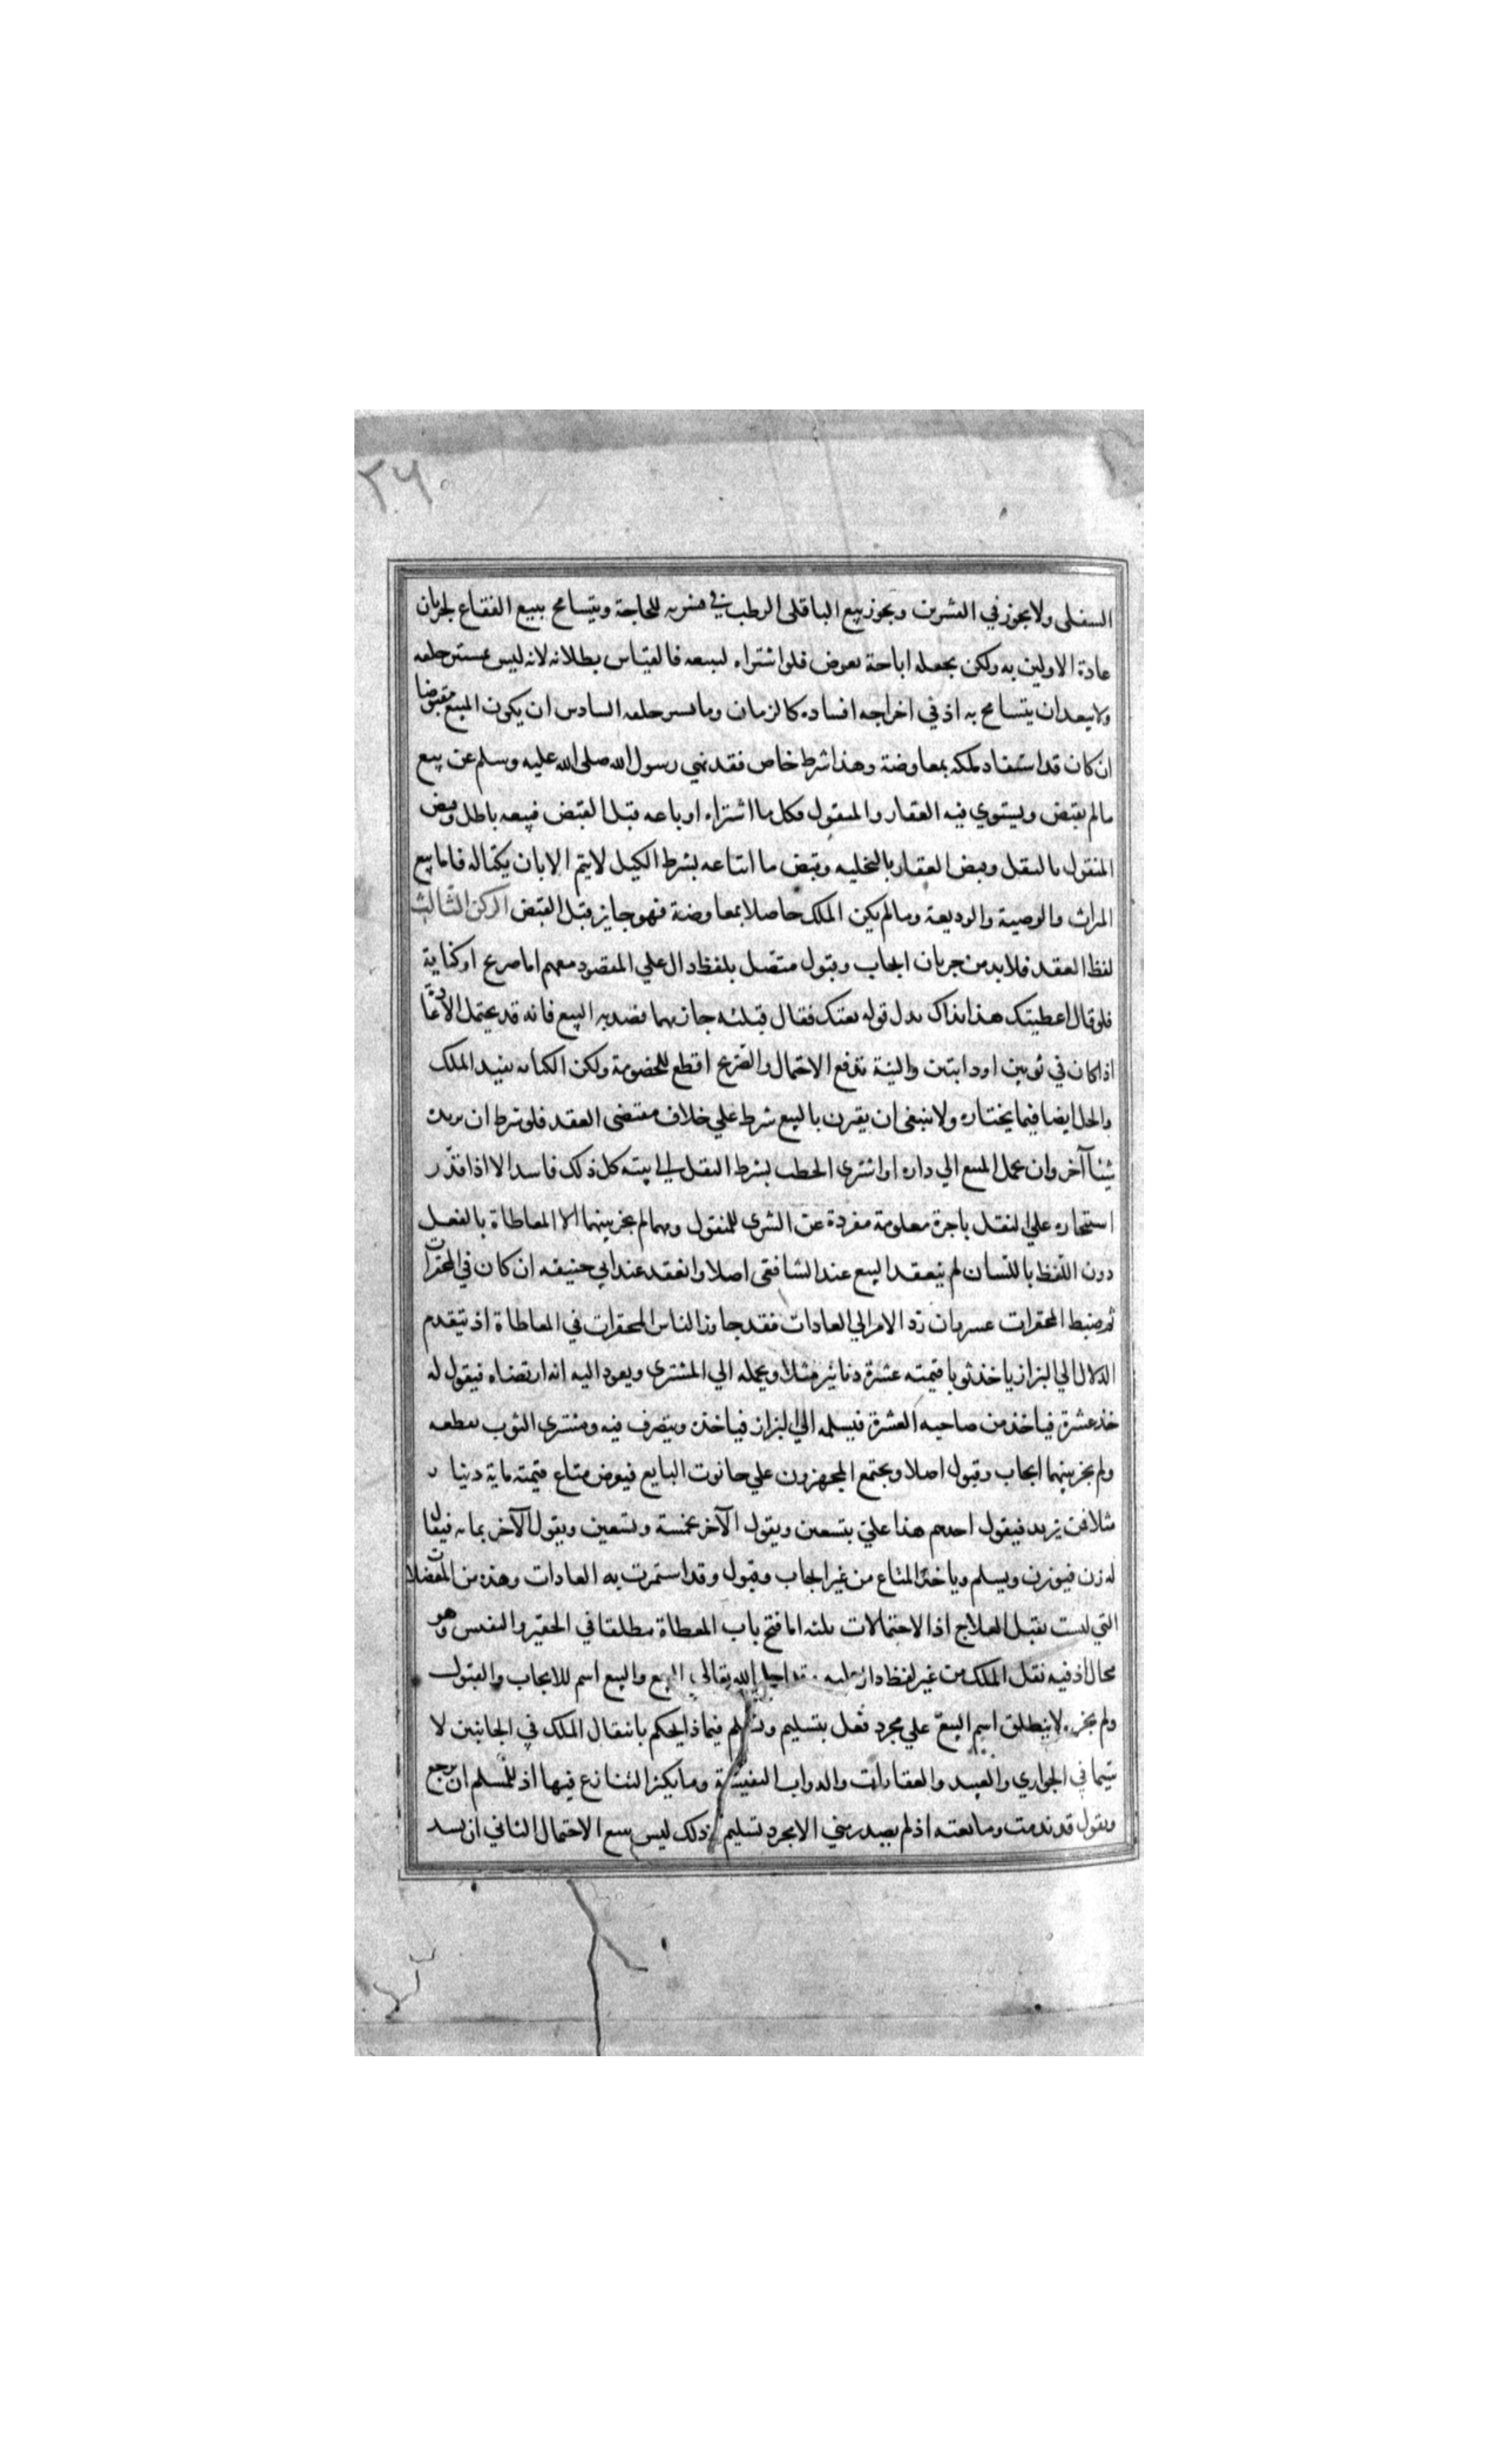 ٢٦٠
السفلى ولا يجوز في القشرين ويجوز بيع الباقلى الرطب في قشريه للحاجة ويتسامح ببيع الفقاع لجريان
عادة الاولين به ولكن نجعله اباحة بعوض فلو اشتراه ليبيعه فالقياس بطلانه لانه ليس مستتر خلقه
ولا يبعد ان يتسامح به اذ في اخراجه افساده كالرمان وما يستر خلقه السادس ان يكون المبيع مقبوضا
ان كان قد استفاد ملكه بمعاوضة وهذا شرط خاص فقد نهي رسول الله صلى الله عليه وسلم عن بيع
ما لم يقبض ويستوي فيه العقار والمنقول فكل ما اشتراه او باعه قبل القبض فبيعه باطل وقبض
المنقول بالنقل وقبض العقار بالتخليه وقبض ما ابتاعه بشرط الكيل لا يتم الا بان يكتاله فاما بيع
الميراث والوصية والوديعة وما لم يكن الملك حاصلا بمعاوضة فهو جايز قبل القبض الركن الثالث
لفظ العقد فلا بد من جريان ايجاب وقبول متصل بلفظ دال علي المقصود مفهم اما صريح او كناية
فلو قال اعطيتك هذا بذاك بدل قوله بعتك فقال قبلته جاز مهما قصد به البيع فانه قد يحتمل الاعادة
اذا كان في ثوبين او دابتين والنية تدفع الاحتمال والصريح اقطع للخصومة ولكن الكناية تفيد الملك
والحل ايضا فيما يختاره ولا ينبغي ان يقرن بالبيع شرط علي خلاف مقتضى العقد فلو شرط ان يزيده
شيئا آخر وان يحمل المبيع الي داره او اشترى الحطب بشرط النقل الي بيته كل ذلك فاسد الا اذا قدّر
استيجاره علي النقل باجرة معلومة مفردة عن الشرى للمنقول ومهما لم يجر بينهما الا المعاطاة بالفعل
دون اللفظ باللسان لم ينعقد البيع عند الشافعى اصلا وانعقد عند ابي حنيفه ان كان في المحقرات
ثم ضبط المحقرات عسر فان رد الامر الي العادات فقد جاوز الناس المحقرات في المعاطاة اذ يتقدم
الدلال الي البزاز ياخذ ثوبا قيمته عشرة دنانير مثلا ويحمله الي المشترى ويعود اليه انه ارتضاه فيقول له
خذ عشرة فياخذ من صاحبه العشرة فيسلمه الي البزاز فياخذه ويتصرف فيه ومشترى الثوب يقطعه
ولم يجر بينهما ايجاب وقبول اصلا ويجتمع المجهزون علي حانوت البايع فيعرض متاع قيمته ماية دينار
مثلا فمن يزيد فيقول احدهم هذا عليّ بتسعين ويقول الآخر بخمسة وتسعين ويقول الآخر بمايه فيقال
له زن فيوزن ويسلم وياخذ المتاع من غير ايجاب وقبول وقد استمرت به العادات وهذه من المعضلات
التي ليست تقبل العلاج اذ الاحتمالات ثلثه اما فتح باب المعطاة مطلقا في الحقير والنفيس وهو
محال اذ فيه نقل الملك من غير لفظ دال عليه وقد احل الله تعالي البيع والبيع اسم للايجاب والقبول
ولم يجر لا ينطلق اسم البيع علي مجرد فعل بتسليم وتسلم فبماذا يحكم بانتقال الملك في الجانبين لا
سيما في الجواري والعبيد والعقارات والدواب النفيسة وما يكثر التنازع فيها اذ للمسلم ان يرجع
ويقول قد ندمت وما بعته اذ لم يصدر مني الا مجرد تسليم وذلك ليس ببيع الاحتمال الثاني ان يسد